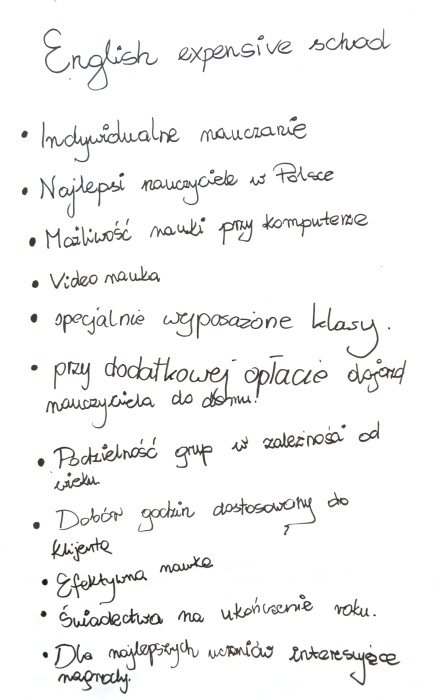 English expensive school
• Indywidualne nauczanie
• Najlepsi nauczyciele w Polsce
• Możliwość nauki przy komputerze
• Video nauka
• specjalnie wyposażone klasy.
• przy dodatkowej opłacie dojazd
nauczyciela do domu!
• Podzielność grup w zależności od
wieku
• Dobór godzin dostosowany do
klijenta
• Efektywna nauka
• Świadectwa na ukończenie roku.
• Dla najlepszych uczniów interesujące
nagrody.